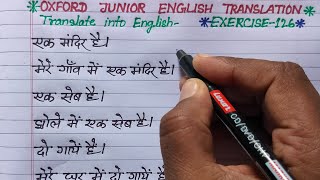 *OXFORD JUNIOR ENGLISH TRANSLATION*
Translate into English- *EXERCISE-126*
एक मंदिर है।
मेरे गाँव में एक मंदिर है।
एक सेब है।
झोले में एक सेब है।
दो गायें हैं।
मेरे घर में दो गायें हैं
Luxor CD/DVD/OHP